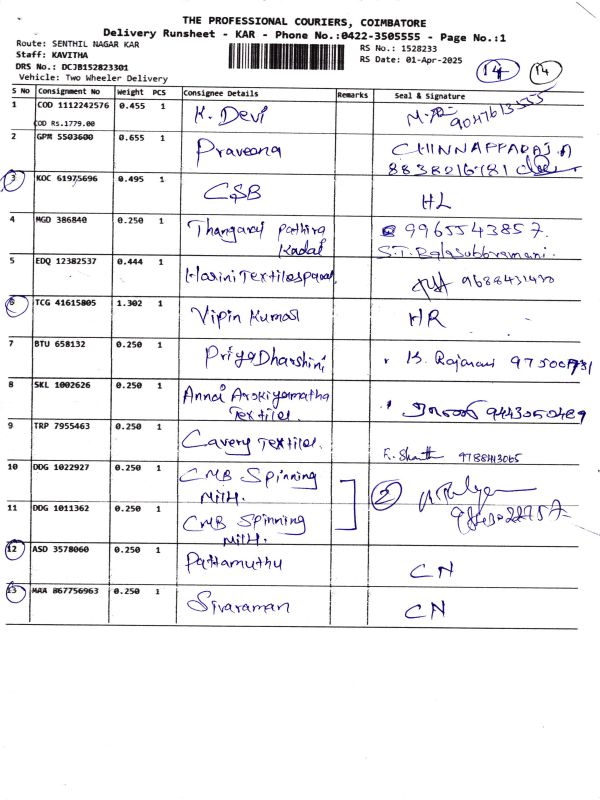 THE PROFESSIONAL COURIERS, COIMBATORE
Delivery Runsheet - KAR - Phone No.:0422-3505555 - Page No.:1
Route: SENTHIL NAGAR KAR
RS No.: 1528233
Staff: KAVITHA
RS Date: 01-Apr-2025
DRS No.: DCJB152823301
Vehicle: Two Wheeler Delivery
14 14
S No Consignment No Weight PCS Consignee Details Remarks Seal & Signature
1 COD 1112242576 0.455 1 K. Devi
COD Rs.1779.00
2 GPM 5503600 0.655 1 Praveena CHINNAPPARAJ.A
8838016781
3 KOC 61975696 0.495 1 CSB HL
4 MGD 386840 0.250 1 Thangaraj Pathira 9965543857.
Kadai S.T. Balasubbramani.
5 EDQ 12382537 0.444 1 Harini Textiles 9688431430
6 TCG 41615805 1.302 1 Vipin Kumar HR
7 BTU 658132 0.250 1 Priya Dharshini
8 SKL 1002626 0.250 1 Annai Arokiyamatha
Textiles. 9443050489
9 TRP 7955463 0.250 1 Cavery Textiles.
10 DDG 1022927 0.250 1 CMB Spinning
Mill. 2
11 DDG 1011362 0.250 1 CMB Spinning
Mill.
12 ASD 3578060 0.250 1 Pattamuthu CN
13 MAA 867756963 0.250 1 Sivaraman CN